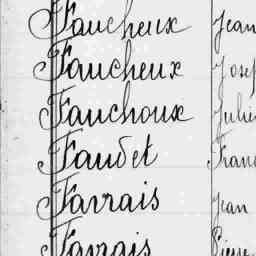 Faucheux Jean
Faucheux Josep
Fauchoux Julie
Faudet Franc
Favrais Jean
Favrais Pierre